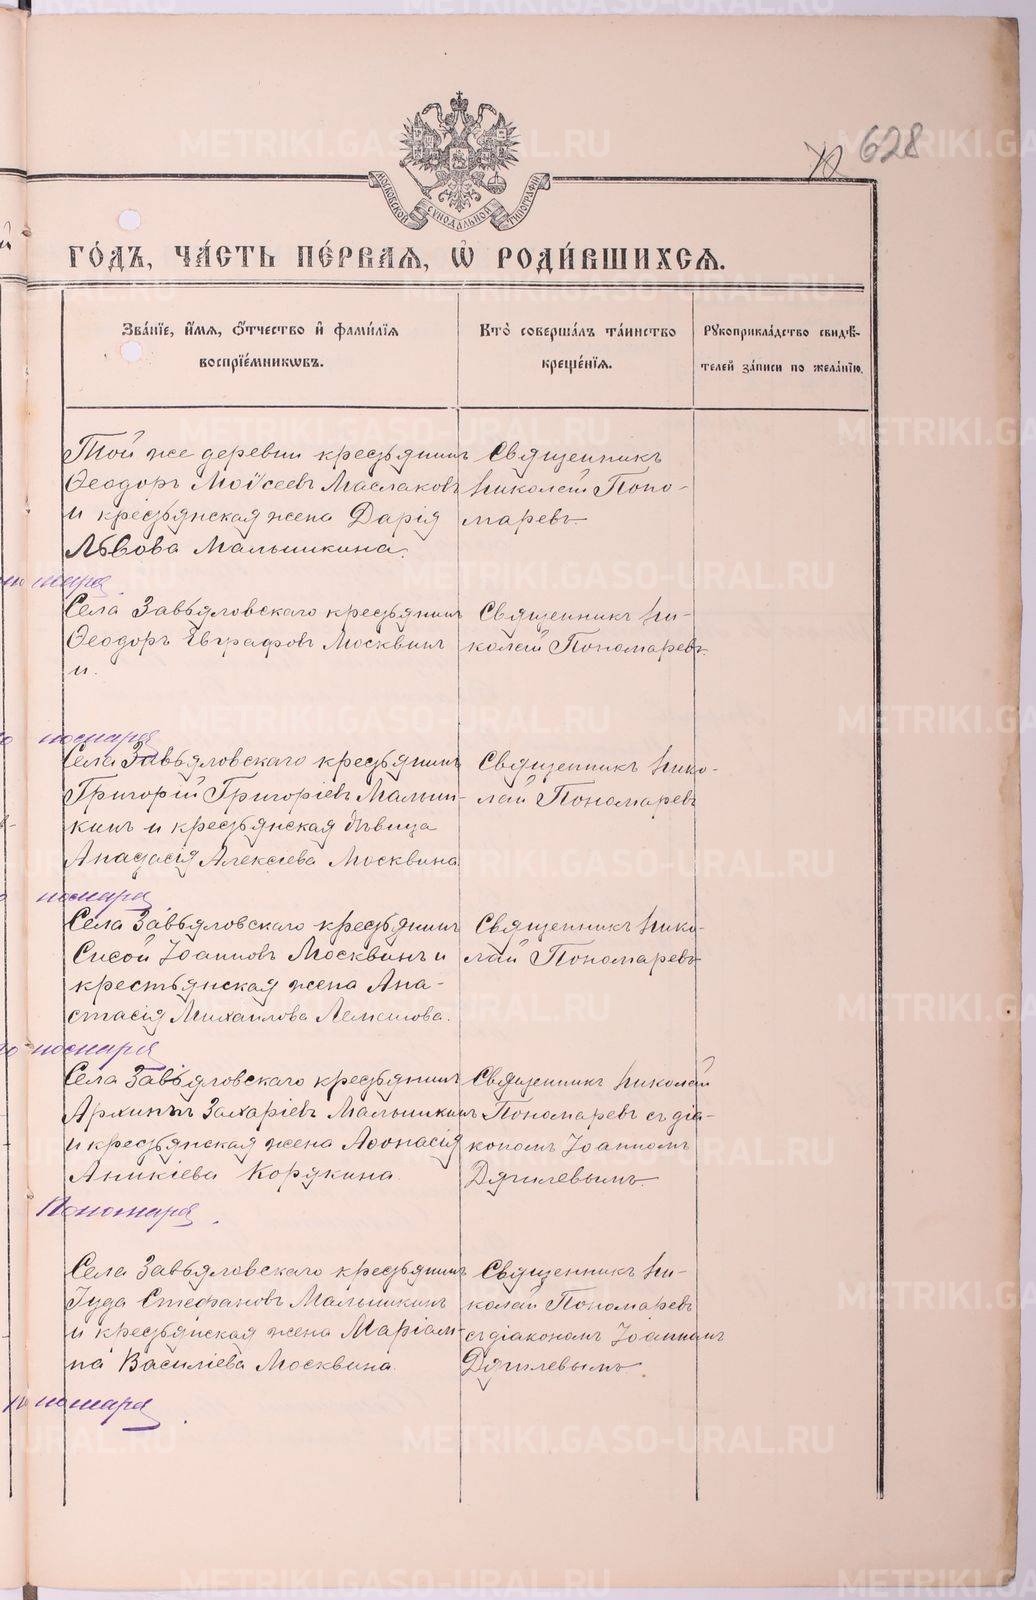 628
МОСКОВСКОЙ СѴНОДАЛЬНОЙ ТИПОГРАФІИ
ГО́ДЪ, ЧА́СТЬ ПЕ́РВАѦ, Ѡ҆ РОДИ́ВШИХСѦ.
Зва́нїе, и҆́мѧ, ѻ҆́тчество и҆ фами́лїѧ
воспрїе́мникѡвъ.
Кто̀ соверша́лъ та́инство
креще́нїѧ.
Рꙋкоприкла́дство свидѣ́-
телей за́писи по жела́нїю.
Той же деревни крестьянинъ
Ѳеодоръ Моѵсеевъ Маслаковъ
и крестьянская жена Дарія
Львова Малышкина.
Священникъ
Николай Поно-
маревъ
Села Завьяловскаго крестьянинъ
Ѳеодоръ Евграфовъ Москвинъ
и.
Священникъ Ни-
колай Пономаревъ
Села Завьяловскаго крестьянинъ
Григорій Григоріевъ Малыш-
кинъ и крестьянская дѣвица
Анастасія Алексіева Москвина
Священникъ Нико-
лай Пономаревъ
Села Завьяловскаго крестьянинъ
Сисой Іоанновъ Москвинъ и
крестьянская жена Ана-
стасія Михаилова Лемешова.
Священникъ Нико-
лай Пономаревъ
Села Завьяловскаго крестьянинъ
Архиппъ Захаріевъ Малышкинъ
и крестьянская жена Аѳонасія
Аникіева Корякина
Священникъ Николай
Пономаревъ съ діа-
кономъ Іоанномъ
Дягилевымъ
Села Завьяловскаго крестьянинъ
Іуда Стефановъ Малышкинъ
и крестьянская жена Маріам-
на Василіева Москвина
Священникъ Ни-
колай Пономаревъ
съ діакономъ Іоанномъ
Дягилевымъ
METRIKI.GASO-URAL.RU